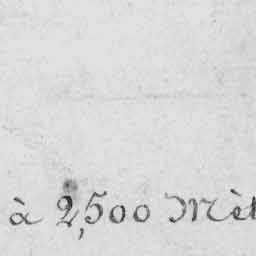 à 2,500 Mèt